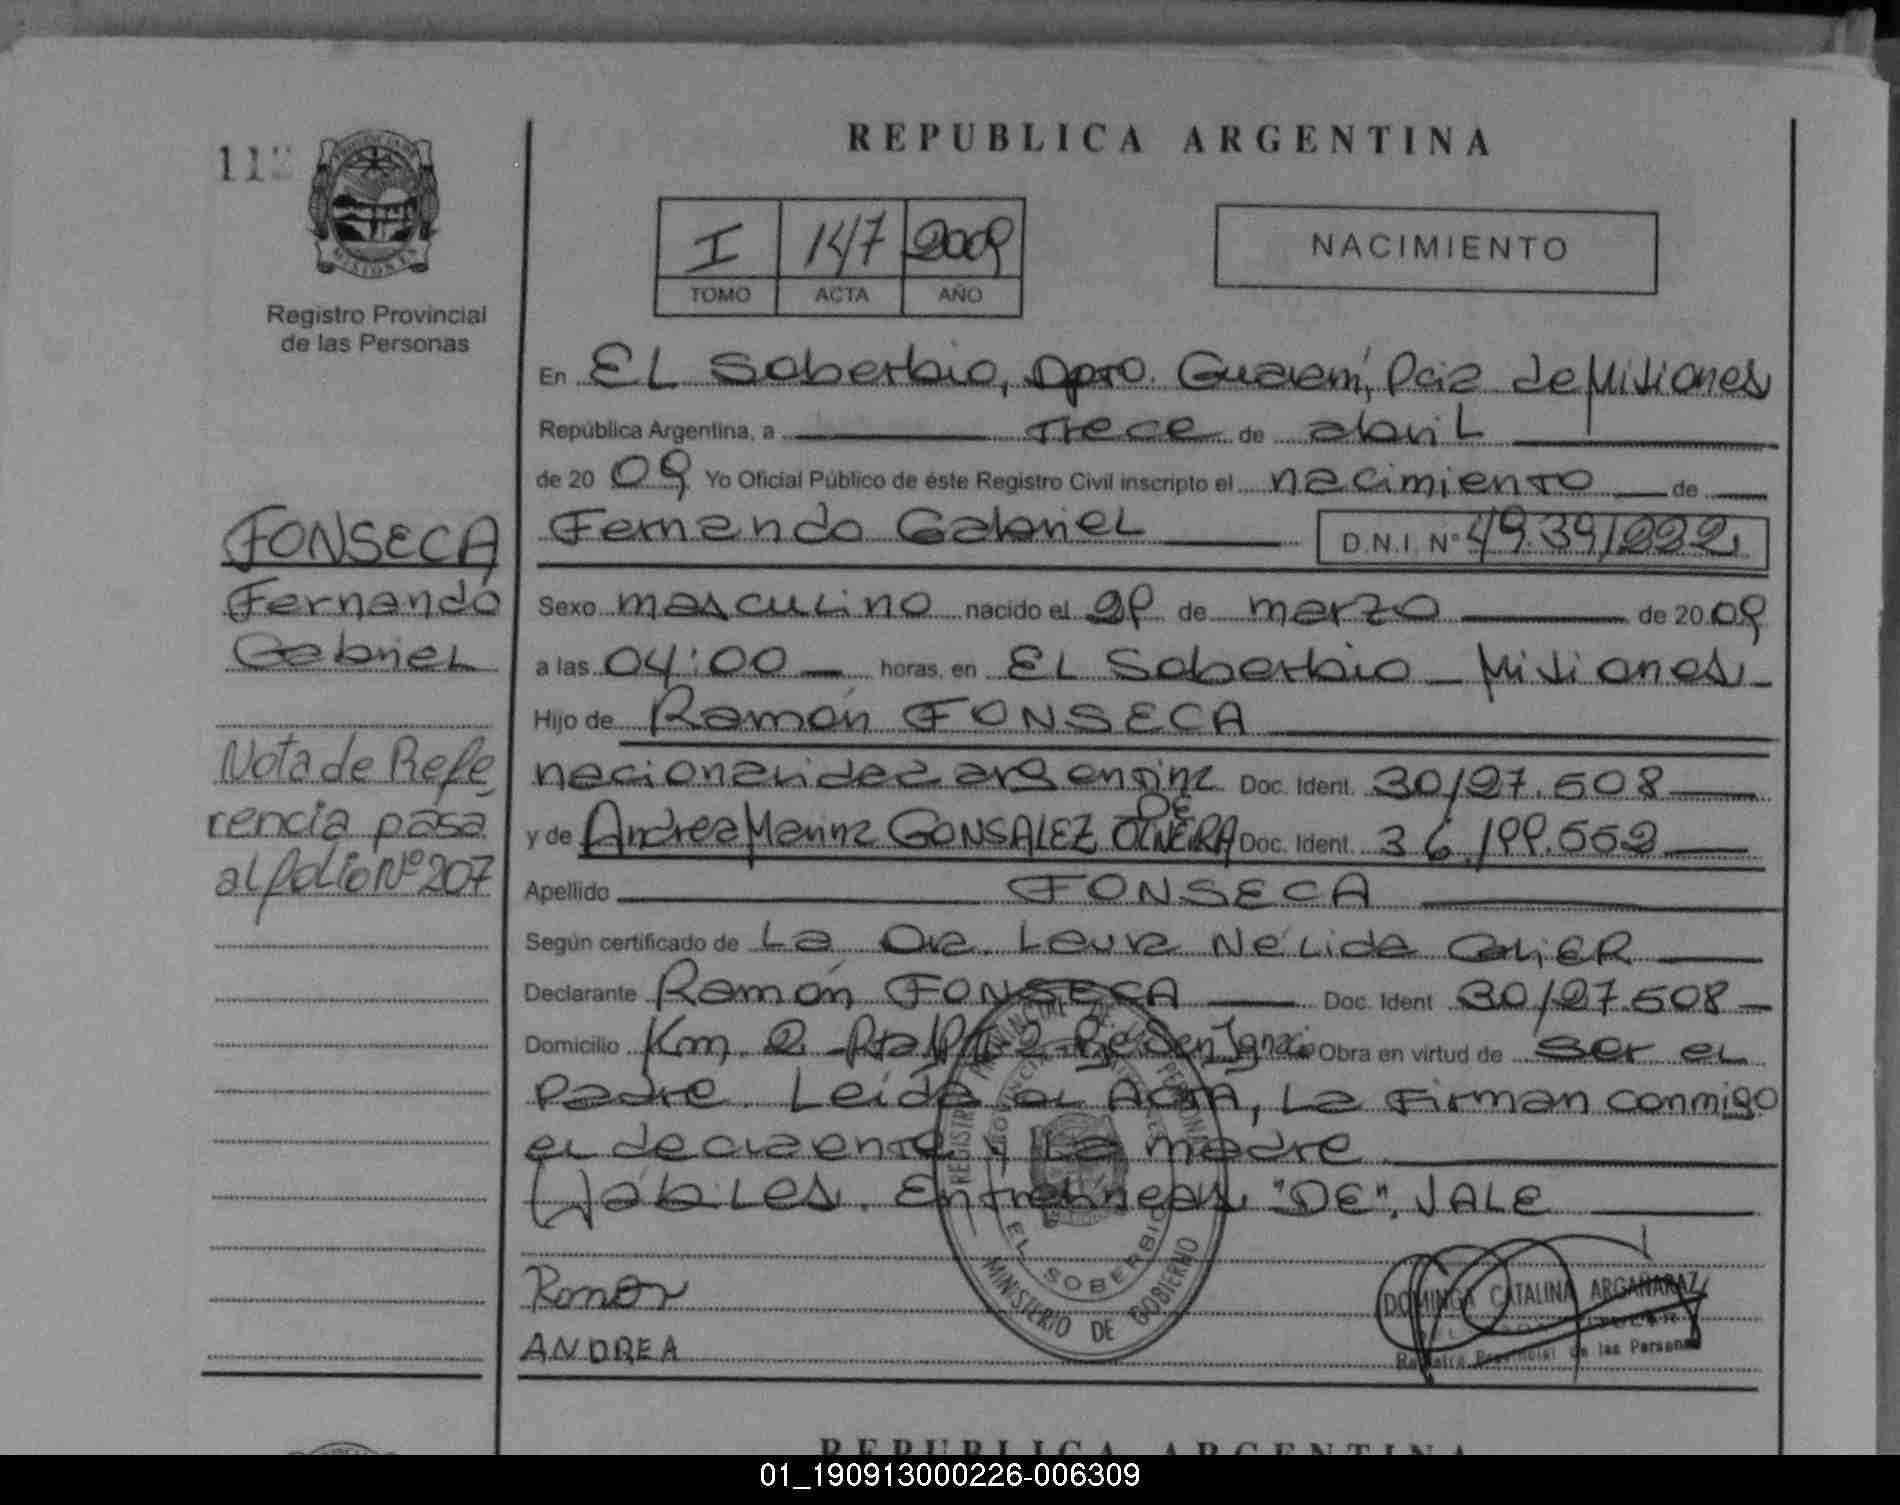 REPUBLICA ARGENTINA
PROVINCIA DE
MISIONES
Registro Provincial
de las Personas
I 147 2009
TOMO ACTA AÑO
NACIMIENTO
En EL Soberbio, Dpto. Guaraní, Pcia de Misiones
República Argentina, a trece de abril
de 20 09 Yo Oficial Público de éste Registro Civil inscripto el nacimiento de
Fernando Gabriel D.N.I. N° 49.391222
Sexo masculino nacido el 29 de marzo de 20 09
a las 04:00 horas, en EL Soberbio - Misiones -
Hijo de Ramón FONSECA
nacionalidad argentina Doc. Ident. 30127.508
DE
y de Andrea Marina GONSALEZ OLIVEIRA Doc. Ident. 36.199.552
Apellido FONSECA
Según certificado de La Dra. Laura Nélida
Declarante Ramón FONSECA Doc. Ident 30127.508
Domicilio Km. 2 San Ignacio Obra en virtud de ser el
padre. Leída el ACTA, La Firman conmigo
el declarante y La madre.
Entrelineas "DE", VALE
Ramon
ANDREA
FONSECA
Fernando
Gabriel
Nota de Refe
rencia pasa
al folio N° 207
REGISTRO PROVINCIAL DE LAS PERSONAS
EL SOBERBIO
MINISTERIO DE GOBIERNO
DOMINGA CATALINA ARGAÑARAZ
Registro Provincial de las Personas
REPUBLICA ARGENTINA
01_190913000226-006309